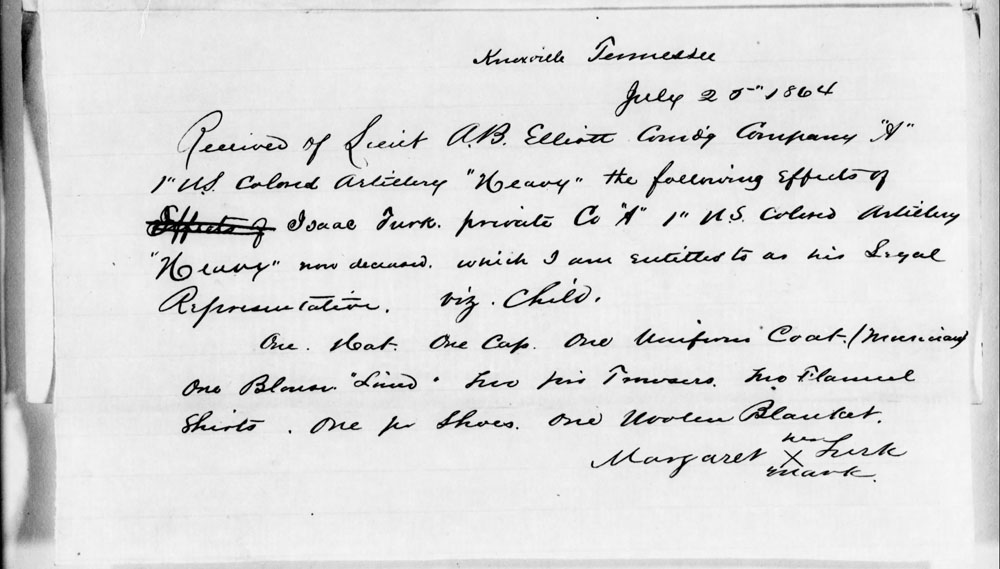 Knoxville Tennessee
July 25" 1864
Received of Lieut A.B. Elliott Comd'g Company "A"
1" U.S. Colored Artillery "Heavy" the following Effects of
Effects of Isaac Turk. private Co "A" 1" U.S. Colored Artillery
"Heavy" now deceased. which I am entitled to as his Legal
Representative. viz. Child.
One. Hat. One Cap. One Uniform Coat. (Musician)
One Blouse "Lined" Two prs Trowsers. Two Flannel
Shirts. One pr Shoes. One Woolen Blanket.
her
Margaret X Turk
mark.